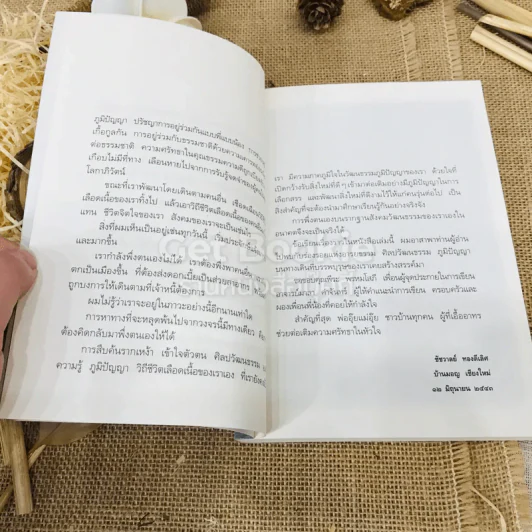 ภูมิปัญญา ปรัชญาการอยู่ร่วมกันแบบพี่แบบน้อง การ
เกื้อกูลกัน การอยู่ร่วมกับธรรมชาติด้วยความเคารพ
ต่อธรรมชาติ ความศรัทธาในคุณธรรมความดีถูก
เกือบไม่มีที่ทาง เลือนหายไปจากการรับรู้จดจำของผู้
โลกาภิวัตน์
ขณะที่เราพัฒนาโดยเดินตามคนอื่น เชื่อ
เลือดเนื้อของเราทิ้งไป แล้วเอาวิถีชีวิตเลือดเนื้อของคนอื่น
แทน ชีวิตจิตใจของเรา สังคมของเราจะเป็นอย่างไร
สิ่งที่ผมเห็นเป็นอยู่เช่นทุกวันนี้
และมากขึ้น
เรากำลังพึ่งตนเองไม่ได้ เราต้องพึ่งพาคนอื่น
ตกเป็นเมืองขึ้น ที่ต้องส่งดอกเบี้ยเป็นส่วย
ถูกบงการให้เดินตามที่เจ้าหนี้ต้องการ
ผมไม่รู้ว่าเราจะอยู่ในภาวะอย่างนี้อีกนานเท่าใด
การหาทางที่จะหลุดพ้นไปจากวงจรนี้มีทางเดียว
ต้องคิดกลับมาพึ่งตนเองให้ได้
การสืบค้นรากเหง้า เข้าใจตัวตน ศิลปวัฒนธรรม
ความรู้ ภูมิปัญญา วิถีชีวิตเลือดเนื้อของเราเอง ที่เรายัง
เรา มีความภาคภูมิใจในวัฒนธรรมภูมิปัญญาของเรา ด้วยใจที่
เปิดกว้างรับสิ่งใหม่ที่ดีๆ เข้ามาต่อเติมอย่างมีภูมิปัญญาในการ
เลือกสรร และพัฒนาสิ่งใหม่ที่ดีงามไว้ให้แก่คนรุ่นต่อไป เป็น
สิ่งสำคัญที่จะต้องนำมาศึกษาเรียนรู้กันอย่างจริงจัง
การพึ่งตนเองบนรากฐานสังคมวัฒนธรรมของเราเองใน
อนาคตจึงจะเป็นจริงได้
ข้อเขียนต่างๆ ในหนังสือเล่มนี้ ผมอาสาพาท่านผู้อ่าน
ศิลปวัฒนธรรม ภูมิปัญญา
บนทางเดินที่บรรพบุรุษของเราเคยสร้างสรรค์มา
เพื่อนผู้จุดประกายในการเขียน
ผู้ให้คำแนะนำการเขียน ครอบครัวและ
มองเพื่อนพี่น้องที่คอยให้กำลังใจ
สำคัญที่สุด พ่ออุ๊ยแม่อุ๊ย ชาวบ้านทุกคน ผู้ที่เอื้ออาทร
ช่วยต่อเติมความศรัทธาในหัวใจ
ชัชวาลย์ ทองดีเลิศ
เชียงใหม่
๑๒ มิถุนายน ๒๕๔๓
Get Bookie